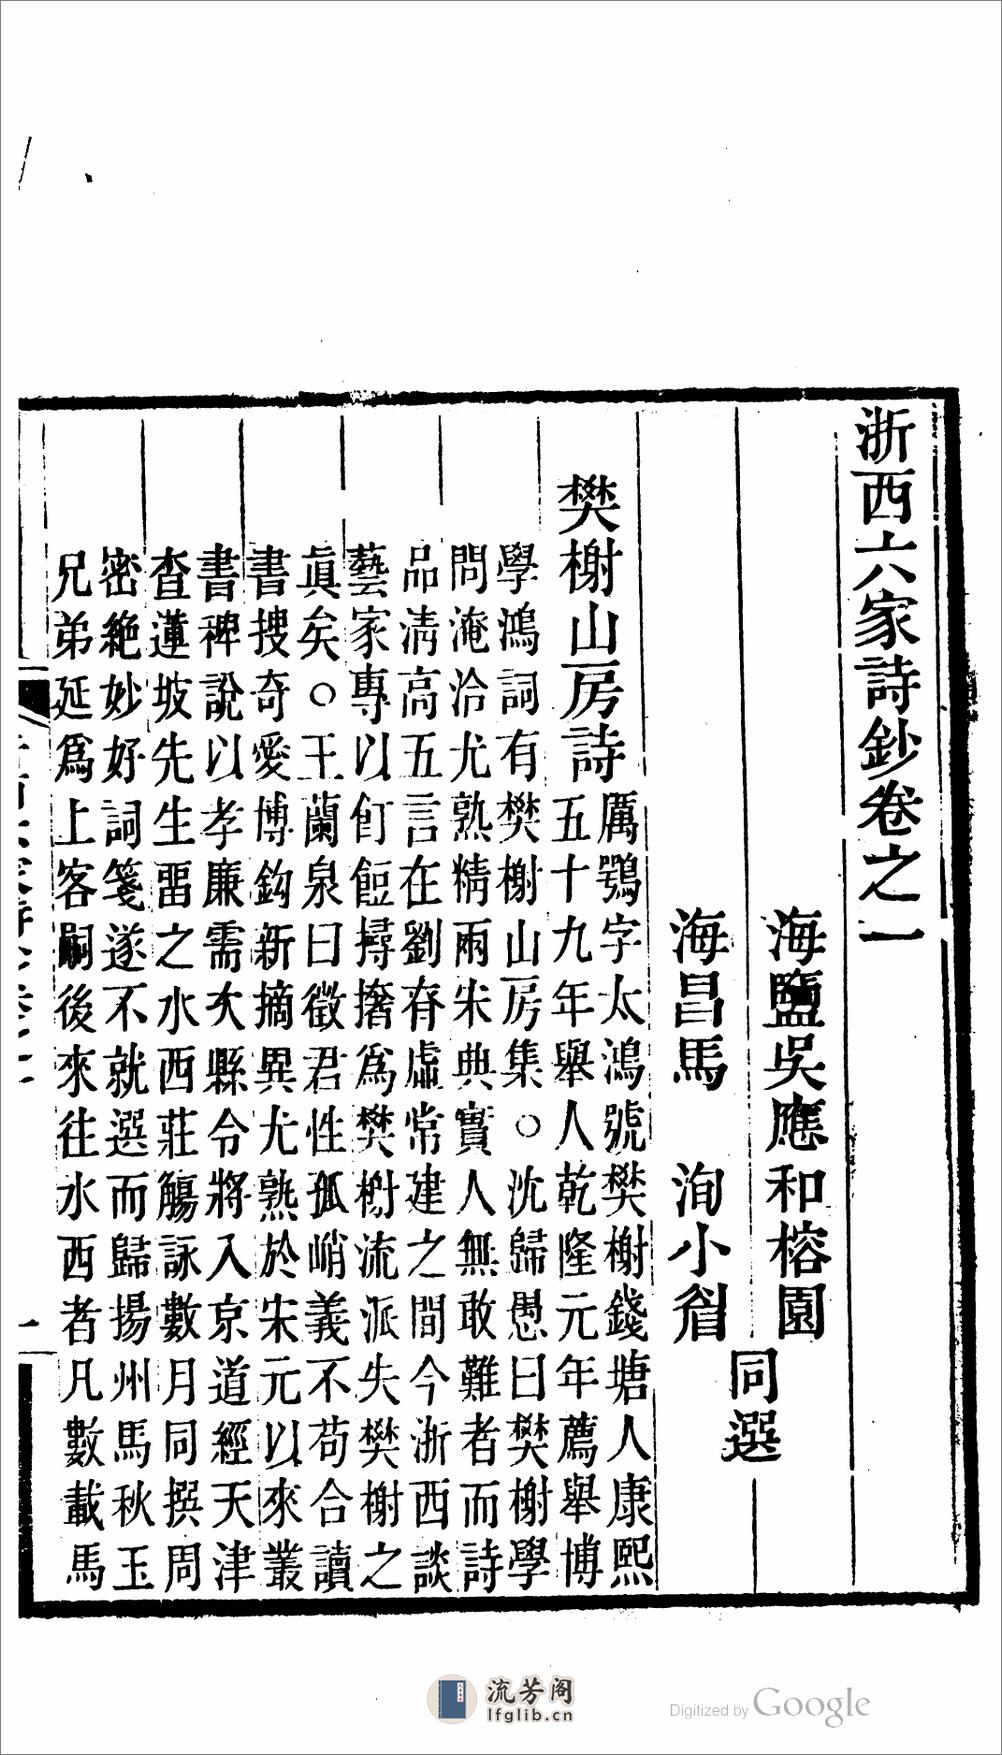 浙西六家詩鈔卷之一
海鹽吳應和榕園
海昌馬　洵小眉
同選
樊榭山房詩
厲鶚字太鴻號樊榭錢塘人康熙
五十九年舉人乾隆元年薦舉博
學鴻詞有樊榭山房集○沈歸愚曰樊榭學
問淹洽尤熟精兩宋典實人無敢難者而詩
品清高五言在劉眘虛常建之間今浙西談
藝家專以飣餖撏撦為樊榭流派失樊榭之
眞矣○王蘭泉曰徵君性孤峭義不苟合讀
書搜奇愛博鈎新摘異尤熟於宋元以來叢
書稗說以孝廉需次縣令將入京道經天津
查蓮坡先生畱之水西莊觴詠數月同撰周
密絶妙好詞箋遂不就選而歸揚州馬秋玉
兄弟延爲上客嗣後來往水西者凡數載馬
一
流芳阁
lfglib.cn
Digitized by Google